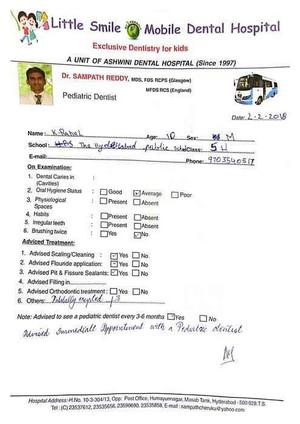 Little Smile Mobile Dental Hospital
Exclusive Dentistry for kids
A UNIT OF ASHWINI DENTAL HOSPITAL (Since 1997)
Dr. SAMPATH REDDY, MDS, FDS RCPS (Glasgow)
MFDS RCS (England)
Pediatric Dentist
Date: 2-2-2018
Name: K. Rahul Age: 10 Sex: M
School: The Hyderabad public Class: 5 H
E-mail: Phone: 9703540517
On Examination:
1. Dental Caries in :
(Cavities)
2. Oral Hygiene Status : Good Average Poor
3. Physiological : Present Absent
Spaces
4. Habits : Present Absent
5. Irregular teeth : Present Absent
6. Brushing twice : Yes No
Adviced Treatment:
1. Advised Scaling/Cleaning : Yes No
2. Advised Flouride application: Yes No
3. Advised Pit & Fissure Sealants: Yes No
4. Advised Filling in
5. Advised Orthodontic treatment : Yes No
6. Others:
Note: Advised to see a pediatric dentist every 3-6 months Yes No
Advised Immediate Appointment with a Pediatric dentist
Hospital Address: H.No. 10-3-304/13, Opp. Post Office, Humayunnagar, Masab Tank, Hyderabad - 500 028 T.S.
Tel : (C) 23537612, 23535656, 23599680, 23535858, E-mail : sampathcheruku@yahoo.com